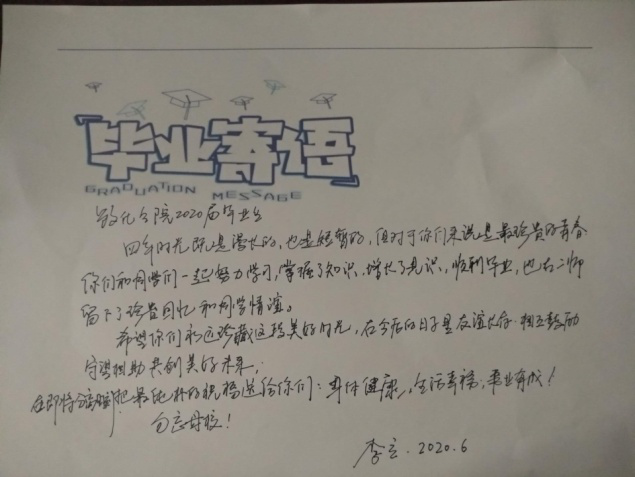 毕业寄语
GRADUATION MESSAGE
致化学院2020届毕业生
四年时光既是漫长的,也是短暂的,但对于你们来说是最珍贵的青春
你们和同学们一起努力学习,掌握了知识,增长了见识,顺利毕业,也在二师
留下了珍贵回忆和同学情谊。
希望你们永远珍藏这段美好时光,在今后的日子里友谊长存、相互鼓励
守望相助共创美好未来;
在即将离别把最纯朴的祝福送给你们:身体健康,生活幸福,事业有成!
勿忘母校!
李立.2020.6